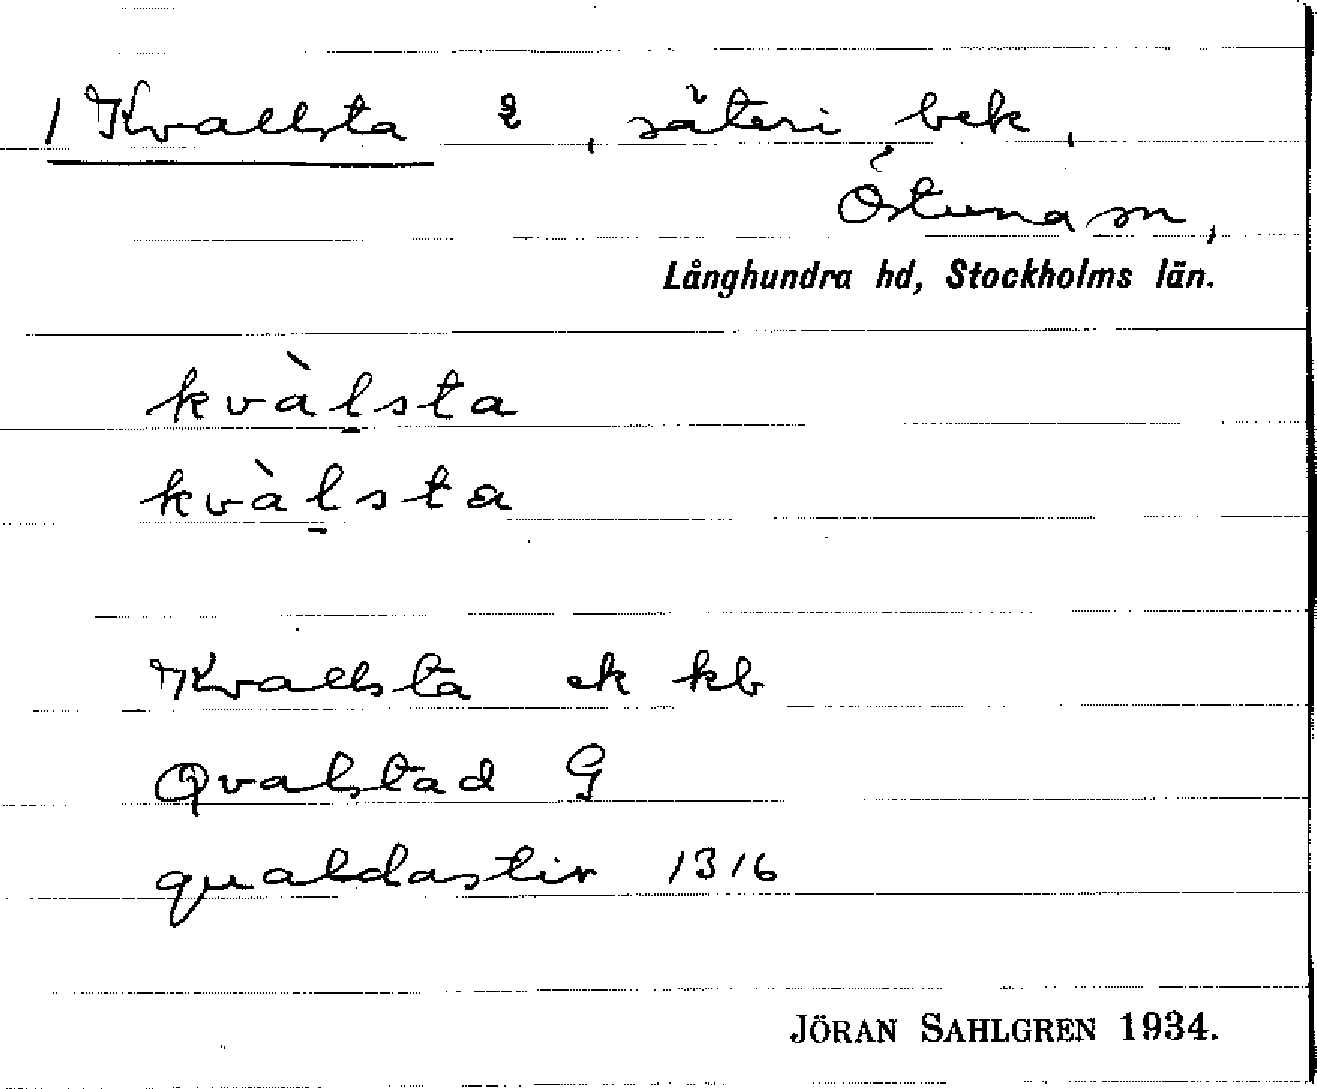 1 Kvallsta 2, säteri bek,
Östuna sn,
Långhundra hd, Stockholms län.
kvàl̠sta
kvàl̠sta
Kvallsta ek kb
Qvalstad G
qualdastir 1316
JÖRAN SAHLGREN 1934.